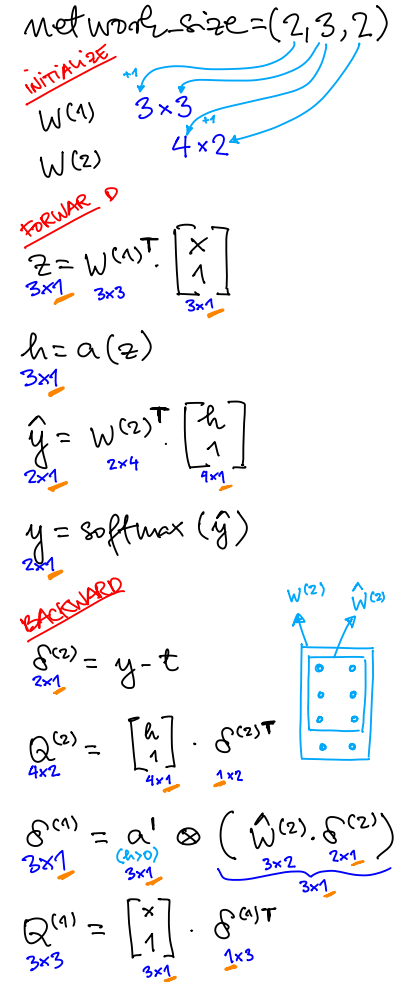 network_size=(2,3,2)
INITIALIZE
+1
W(1) 3×3
+1
W(2) 4×2
FORWARD
z = W(1)T · [x 1]
3×1 3×3 3×1
h = a(z)
3×1
ŷ = W(2)T · [h 1]
2×1 2×4 4×1
y = softmax(ŷ)
2×1
BACKWARD
W(2) Ŵ(2)
δ(2) = y - t
2×1
Q(2) = [h 1] · δ(2)T
4×2 4×1 1×2
δ(1) = a' ⊗ (Ŵ(2) · δ(2))
3×1 (h>0) 3×2 2×1
3×1 3×1
Q(1) = [x 1] · δ(1)T
3×3 3×1 1×3